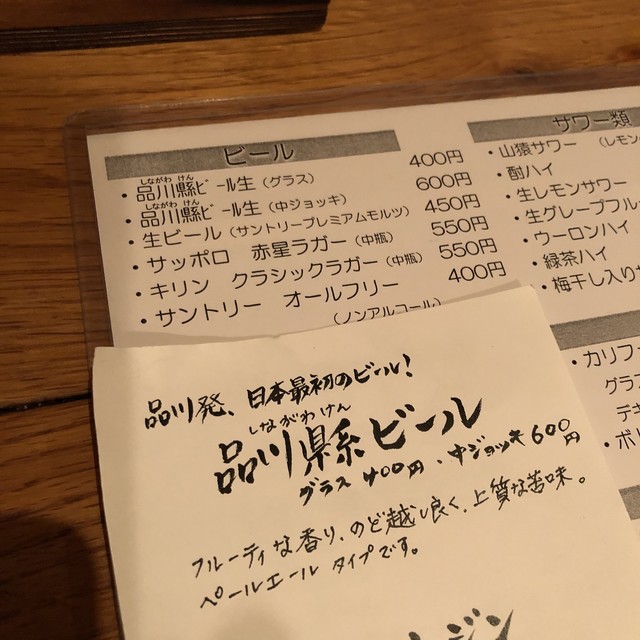 ビール
・品川縣ビール生（グラス） 400円
しながわ けん
・品川縣ビール生（中ジョッキ） 600円
しながわ けん
・生ビール（サントリープレミアムモルツ） 450円
・サッポロ 赤星ラガー（中瓶） 550円
・キリン クラシックラガー（中瓶） 550円
・サントリー オールフリー 400円
（ノンアルコール）
サワー類
・山猿サワー （レモン
・酎ハイ
・生レモンサワー
・生グレープフル
・ウーロンハイ
・緑茶ハイ
・梅干し入りサ
・カリフ
グラス
デキ
・ボ
品川発、日本最初のビール!
しながわけん
品川縣ビール
グラス 400円・中ジョッキ600円
フルーティな香り、のど越し良く、上質な苦味。
ペールエール タイプです。